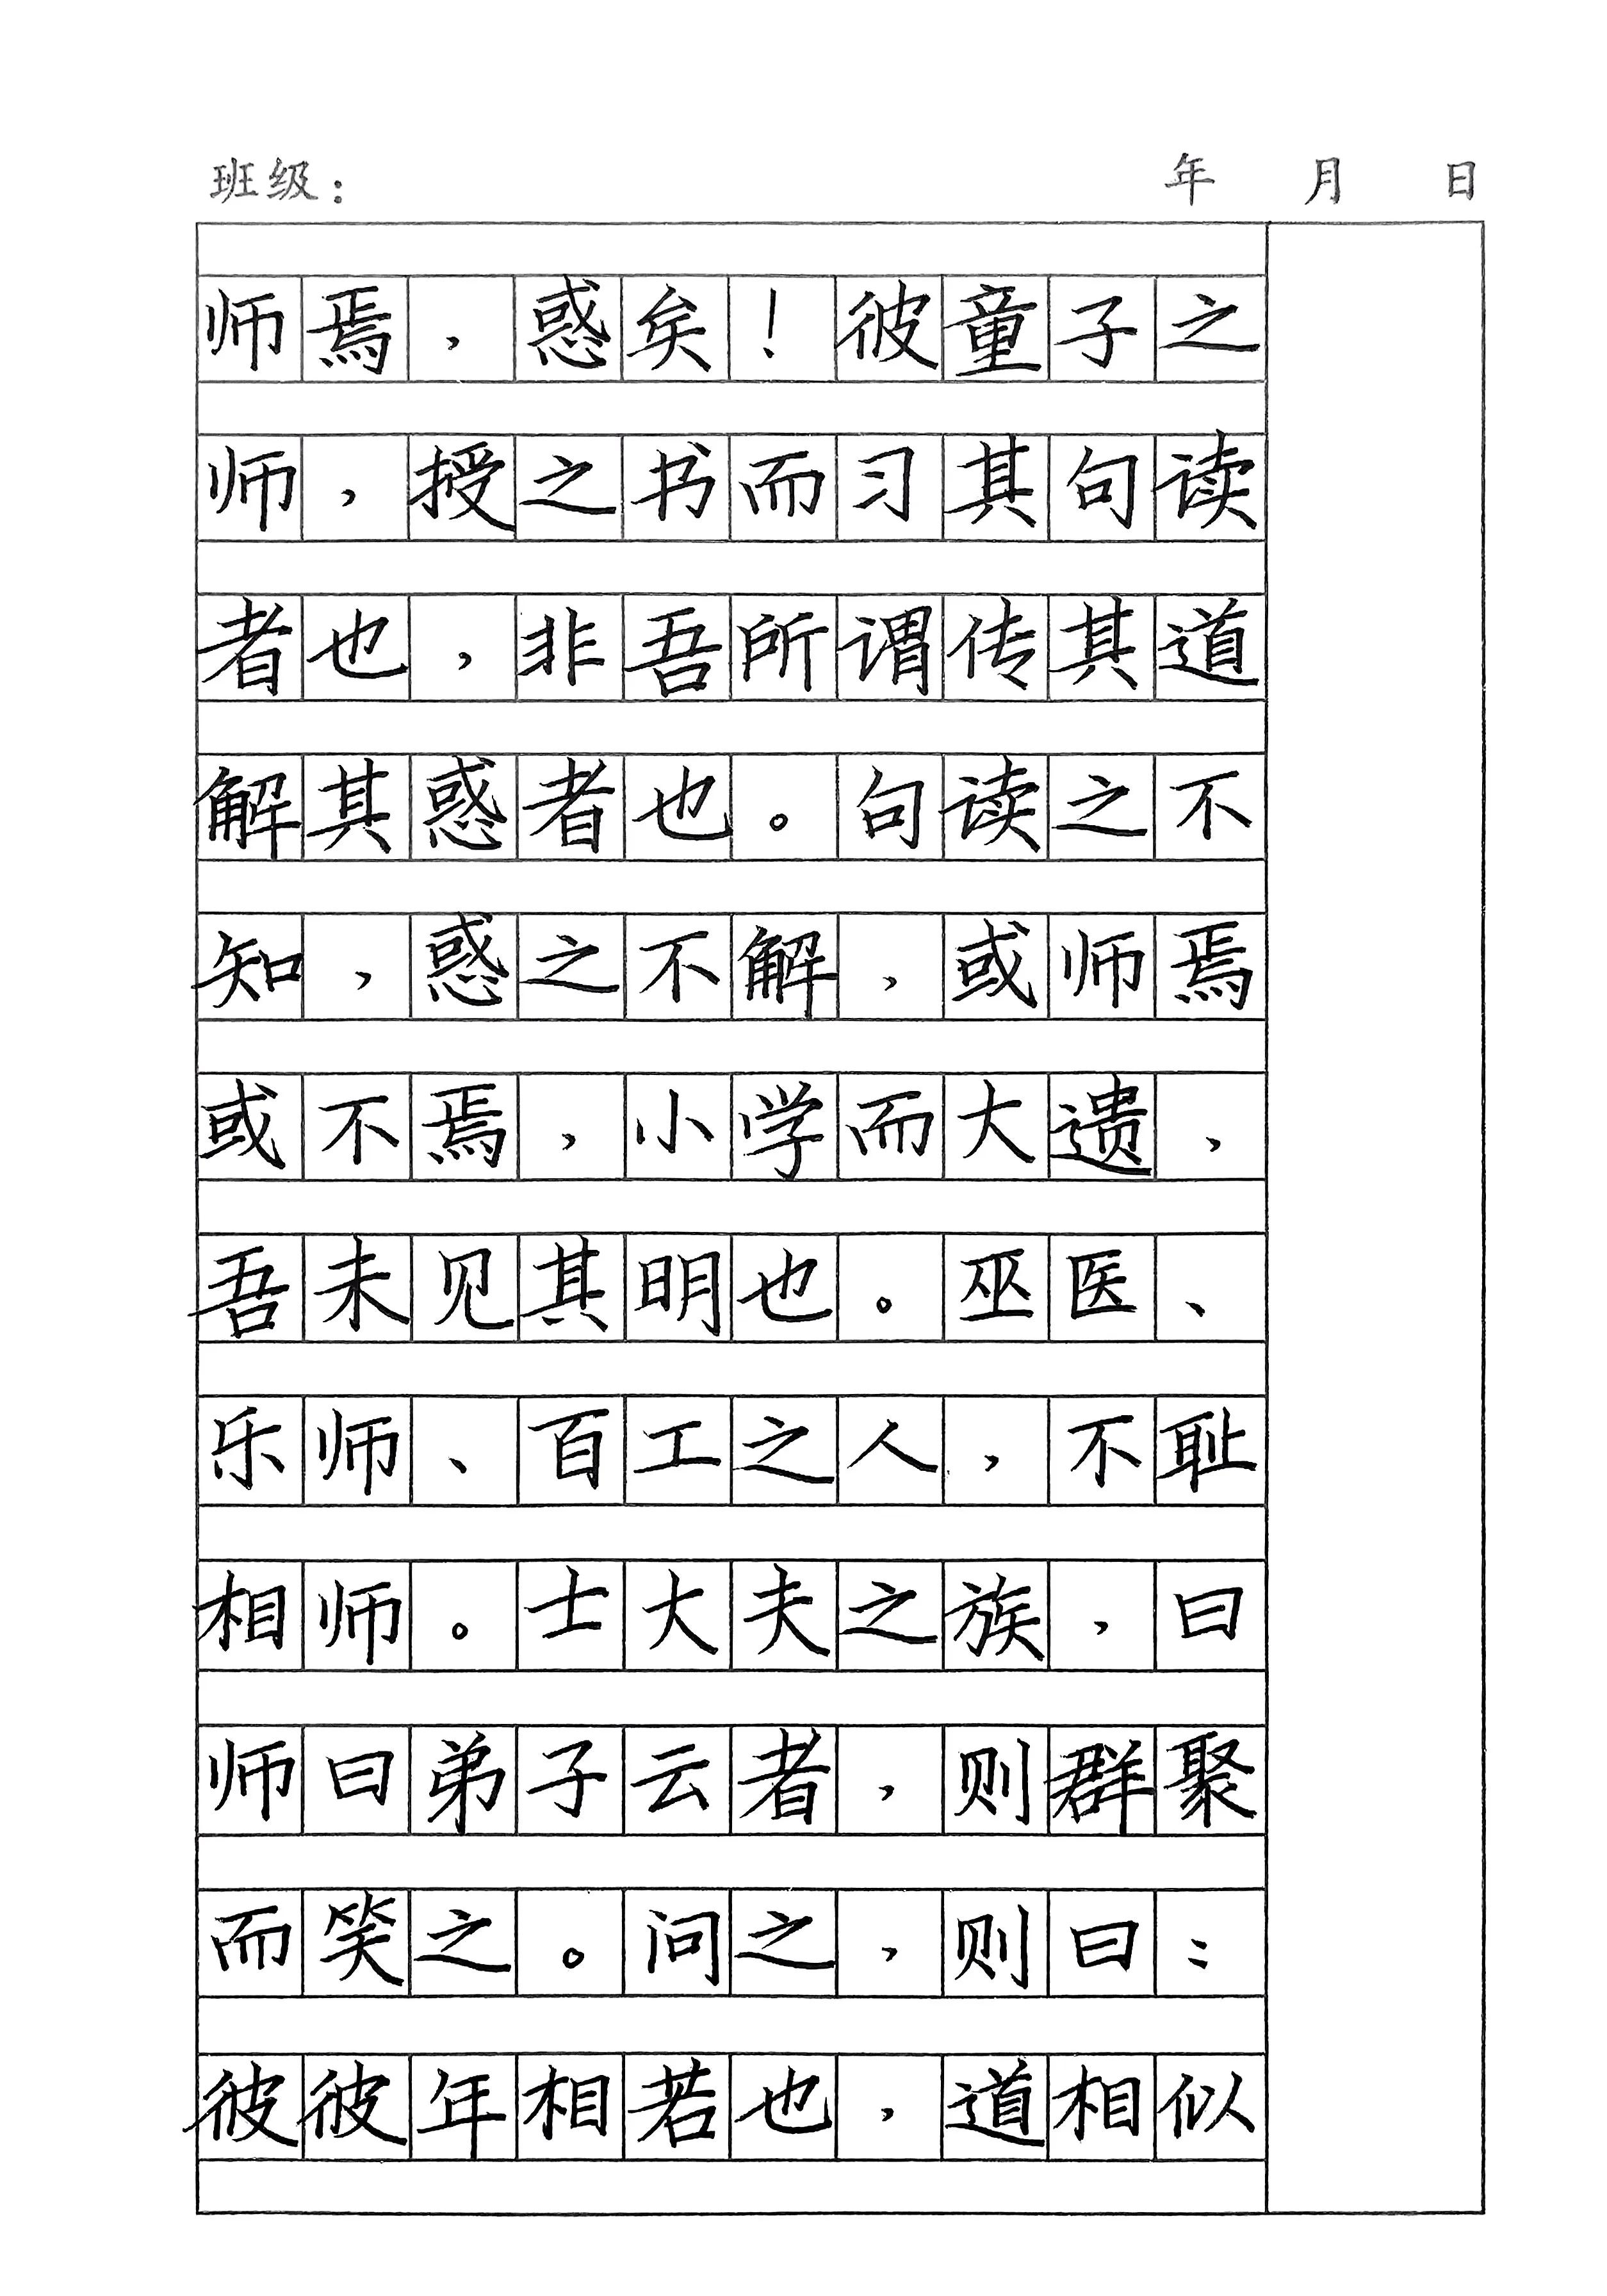 班级： 年 月 日
师焉，惑矣！彼童子之
师，授之书而习其句读
者也，非吾所谓传其道
解其惑者也。句读之不
知，惑之不解，或师焉
或不焉，小学而大遗，
吾未见其明也。巫医、
乐师、百工之人，不耻
相师。士大夫之族，曰
师曰弟子云者，则群聚
而笑之。问之，则曰：
彼彼年相若也，道相似